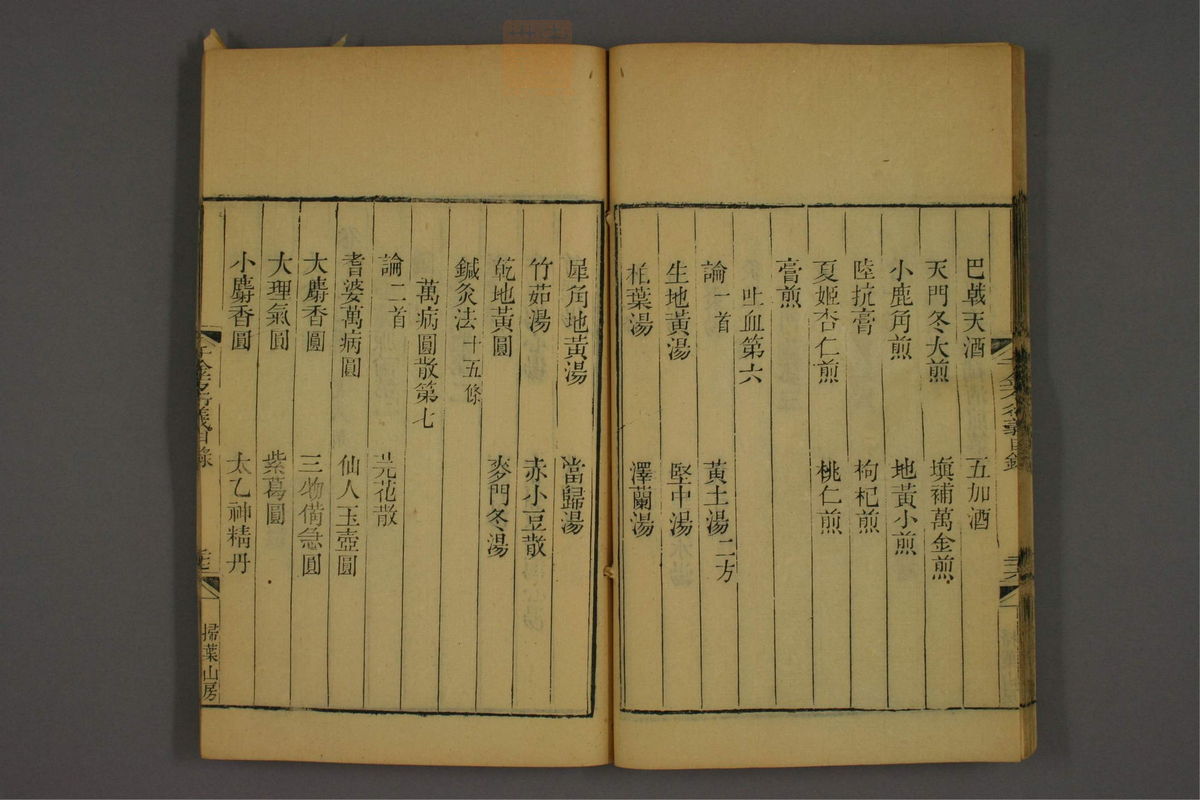 巴戟天酒 五加酒
天門冬大煎 塡補萬金煎
小鹿角煎 地黃小煎
陸抗膏 枸杞煎
夏姬杏仁煎 桃仁煎
膏煎
吐血第六
論一首 黃土湯二方
生地黃湯 堅中湯
柏葉湯 澤蘭湯
犀角地黃湯 當歸湯
竹茹湯 赤小豆散
乾地黃圓 麥門冬湯
鍼灸法十五條
萬病圓散第七
論二首 芫花散
耆婆萬病圓 仙人玉壺圓
大麝香圓 三物備急圓
大理氣圓 紫葛圓
小麝香圓 太乙神精丹
掃葉山房